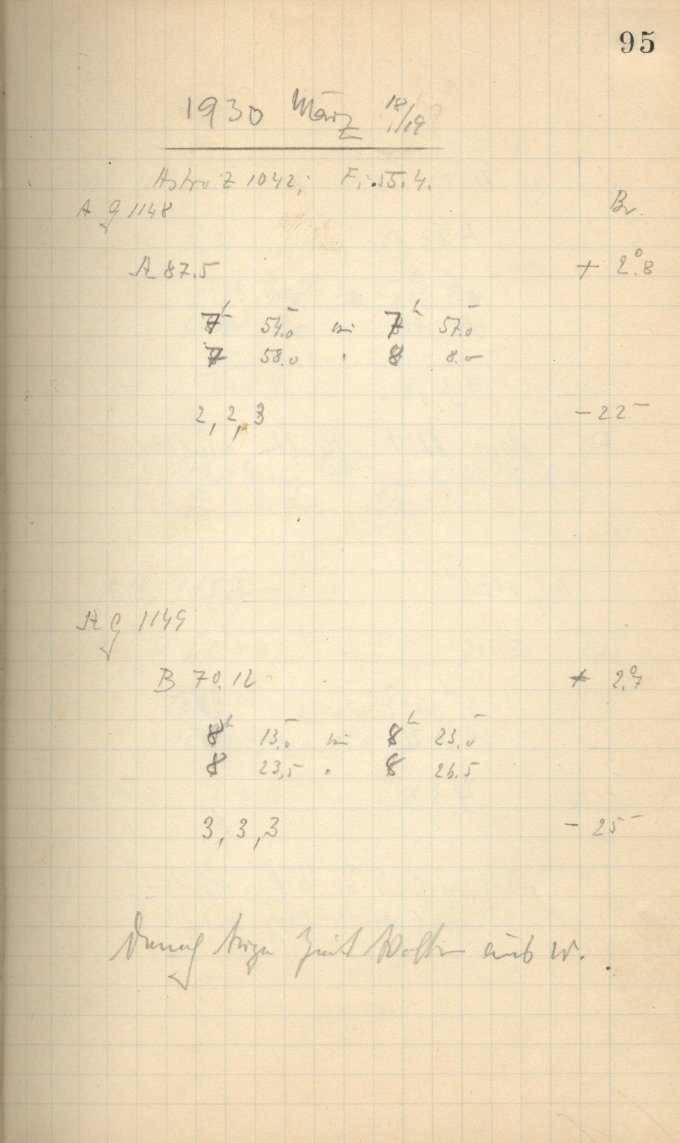 95
1930 März 18/19
Astro Z 1042; F. 15.4.
A g 1148 Br.
A 87.5 + 2°.8
7h 54.0 bis 7h 57.0
7 58.0 " 8 8.0
2, 2, 3 - 22
A g 1149
B 70.12 + 2°.7
8h 13.0 bis 8h 23.0
8 23,5 " 8 26.5
3, 3, 3 - 25
Danach Zeit Wolken aus W.